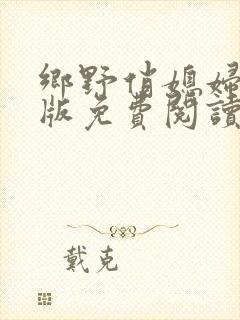 鄉野俏媳婦
版免費閱讀
戴克